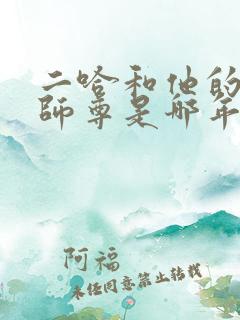 二哈和他的
師尊是哪年
阿福
未任同意禁止转载